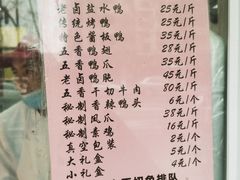 老卤盐水鸭 25元/斤
传统烤鸭 25元/斤
特色酱板鸭 35元/斤
五香鸭 28元/斤
五香鸭爪 35元/斤
老卤鸭肫 45元/斤
五香干切牛肉 80元/斤
秘制香辣头 6元/个
秘制凤爪 38元/斤
秘制素鸡 16元/斤
真空包装 2元/个
大礼盒 5元/个
小礼盒 4元/个